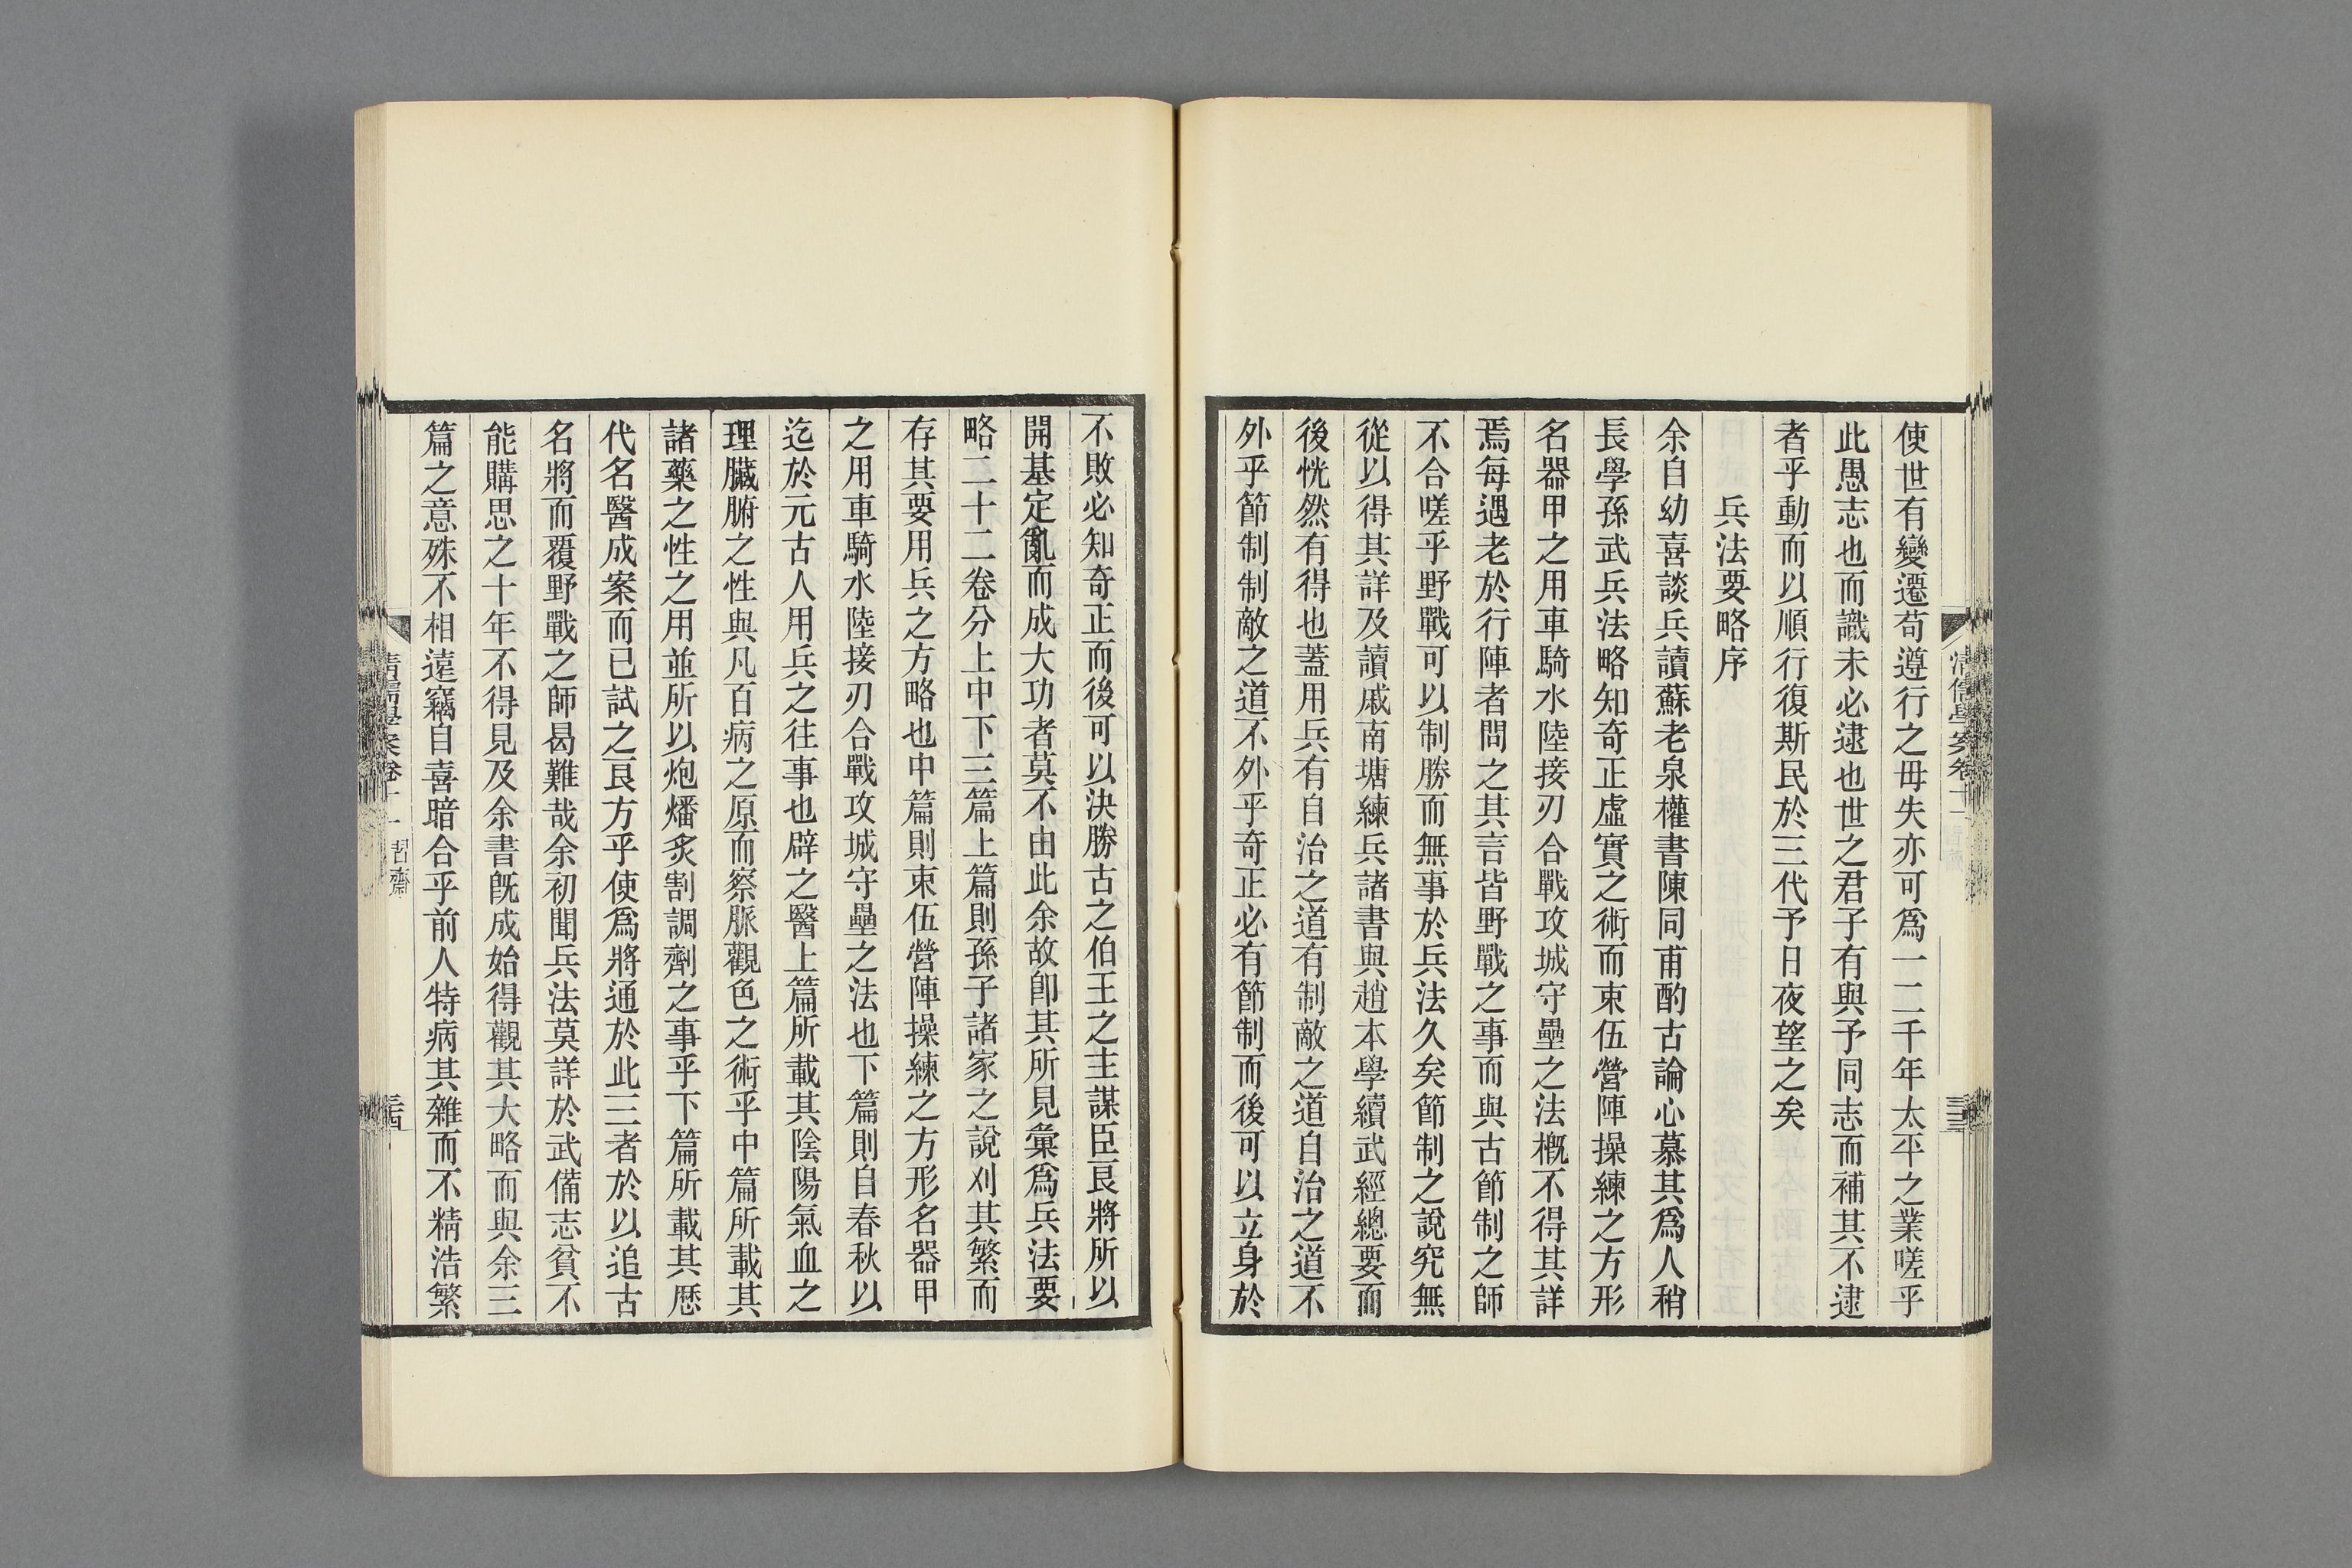 使世有變遷苟遵行之毋失亦可爲一二千年太平之業嗟乎
此愚志也而識未必逮也世之君子有與予同志而補其不逮
者乎動而以順行復斯民於三代予日夜望之矣
兵法要略序
余自幼喜談兵讀蘇老泉權書陳同甫酌古論心慕其爲人稍
長學孫武兵法略知奇正虛實之術而束伍營陣操練之方形
名器甲之用車騎水陸接刃合戰攻城守壘之法槪不得其詳
焉每遇老於行陣者問之其言皆野戰之事而與古節制之師
不合嗟乎野戰可以制勝而無事於兵法久矣節制之說究無
從以得其詳及讀戚南塘練兵諸書與趙本學續武經總要而
後恍然有得也蓋用兵有自治之道有制敵之道自治之道不
外乎節制制敵之道不外乎奇正必有節制而後可以立身於
不敗必知奇正而後可以決勝古之伯王之主謀臣良將所以
開基定亂而成大功者莫不由此余故卽其所見彙爲兵法要
略二十二卷分上中下三篇上篇則孫子諸家之說刈其繁而
存其要用兵之方略也中篇則束伍營陣操練之方形名器甲
之用車騎水陸接刃合戰攻城守壘之法也下篇則自春秋以
迄於元古人用兵之往事也辟之醫上篇所載其陰陽氣血之
理臟腑之性與凡百病之原而察脈觀色之術乎中篇所載其
諸藥之性之用並所以炮燔炙割調劑之事乎下篇所載其歷
代名醫成案而已試之良方乎使爲將通於此三者於以追古
名將而覆野戰之師曷難哉余初聞兵法莫詳於武備志貧不
能購思之十年不得見及余書旣成始得觀其大略而與余三
篇之意殊不相遠竊自喜暗合乎前人特病其雜而不精浩繁